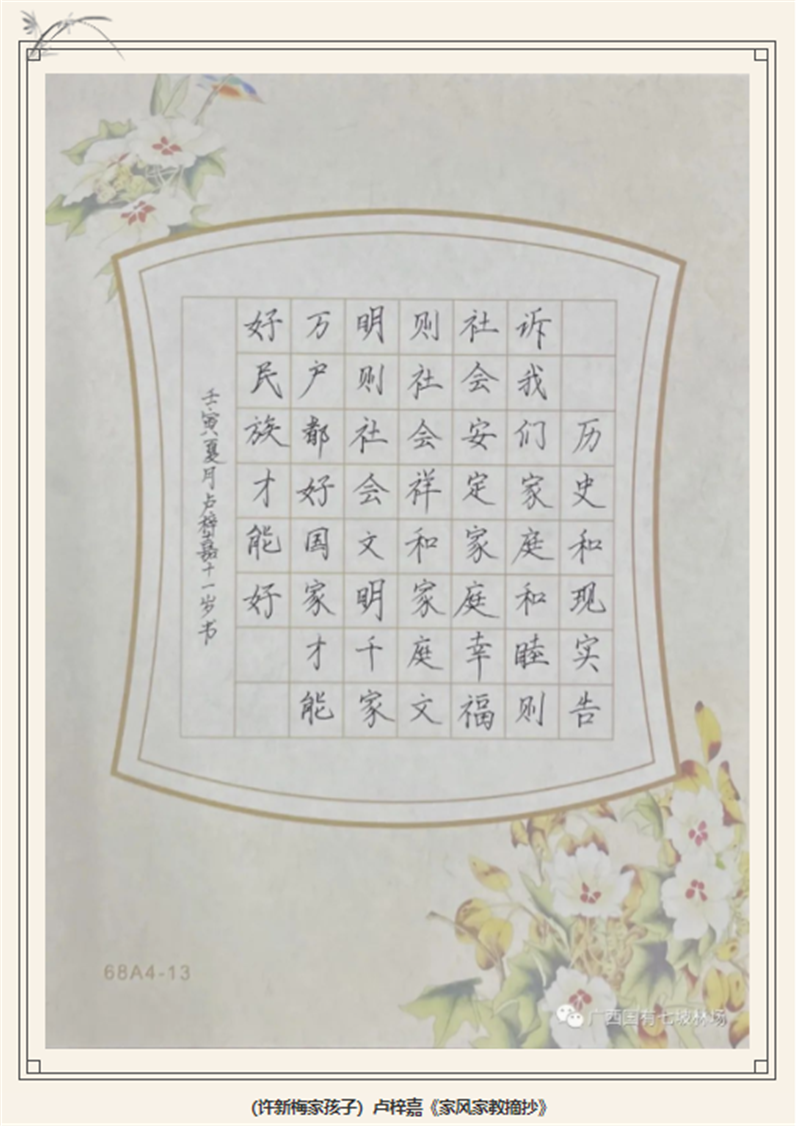 历史和现实告
诉我们家庭和睦则
社会安定家庭幸福
则社会祥和家庭文
明则社会文明千家
万户都好国家才能
好民族才能好
壬寅夏月卢梓嘉十一岁书
68A4-13
广西国有七坡林场
(许新梅家孩子) 卢梓嘉《家风家教摘抄》